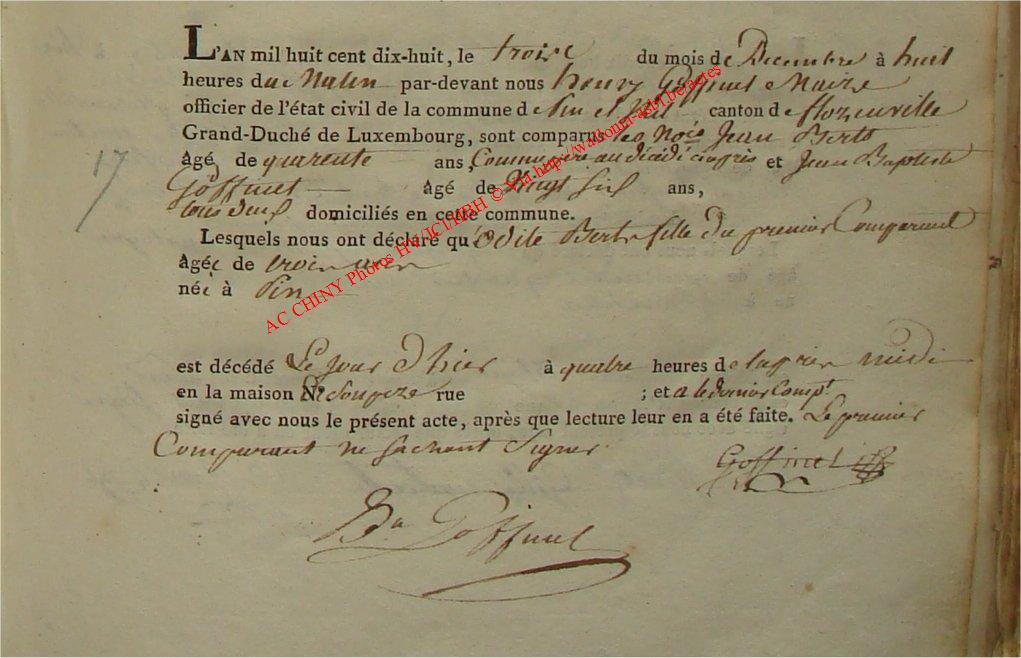 L'AN mil huit cent dix-huit, le troise du mois de Decembre à huit
heures du Maten par-devant nous henry Goffinet Maire
officier de l'état civil de la commune de Pin et canton de florenville
Grand-Duché de Luxembourg, sont comparus Jean Berto
17
âgé de quarente ans, et Jean Baptiste
Goffinet âgé de Vingt six ans,
tous deux domiciliés en cette commune.
Lesquels nous ont déclaré qu'Odile fille du premier Comparent
Agée de trois
née à Pin
est décédé Le jour d'hier à quatre heures de midi
en la maison N° rue ; et a le dernier Compt
signé avec nous le présent acte, après que lecture leur en a été faite. Le premier
Comparant ne sachant Signer.
Goffinet
Bte Goffinet
AC CHINY Photos HV/JCl/HBH © via http://wallonia-asbl.be/actes